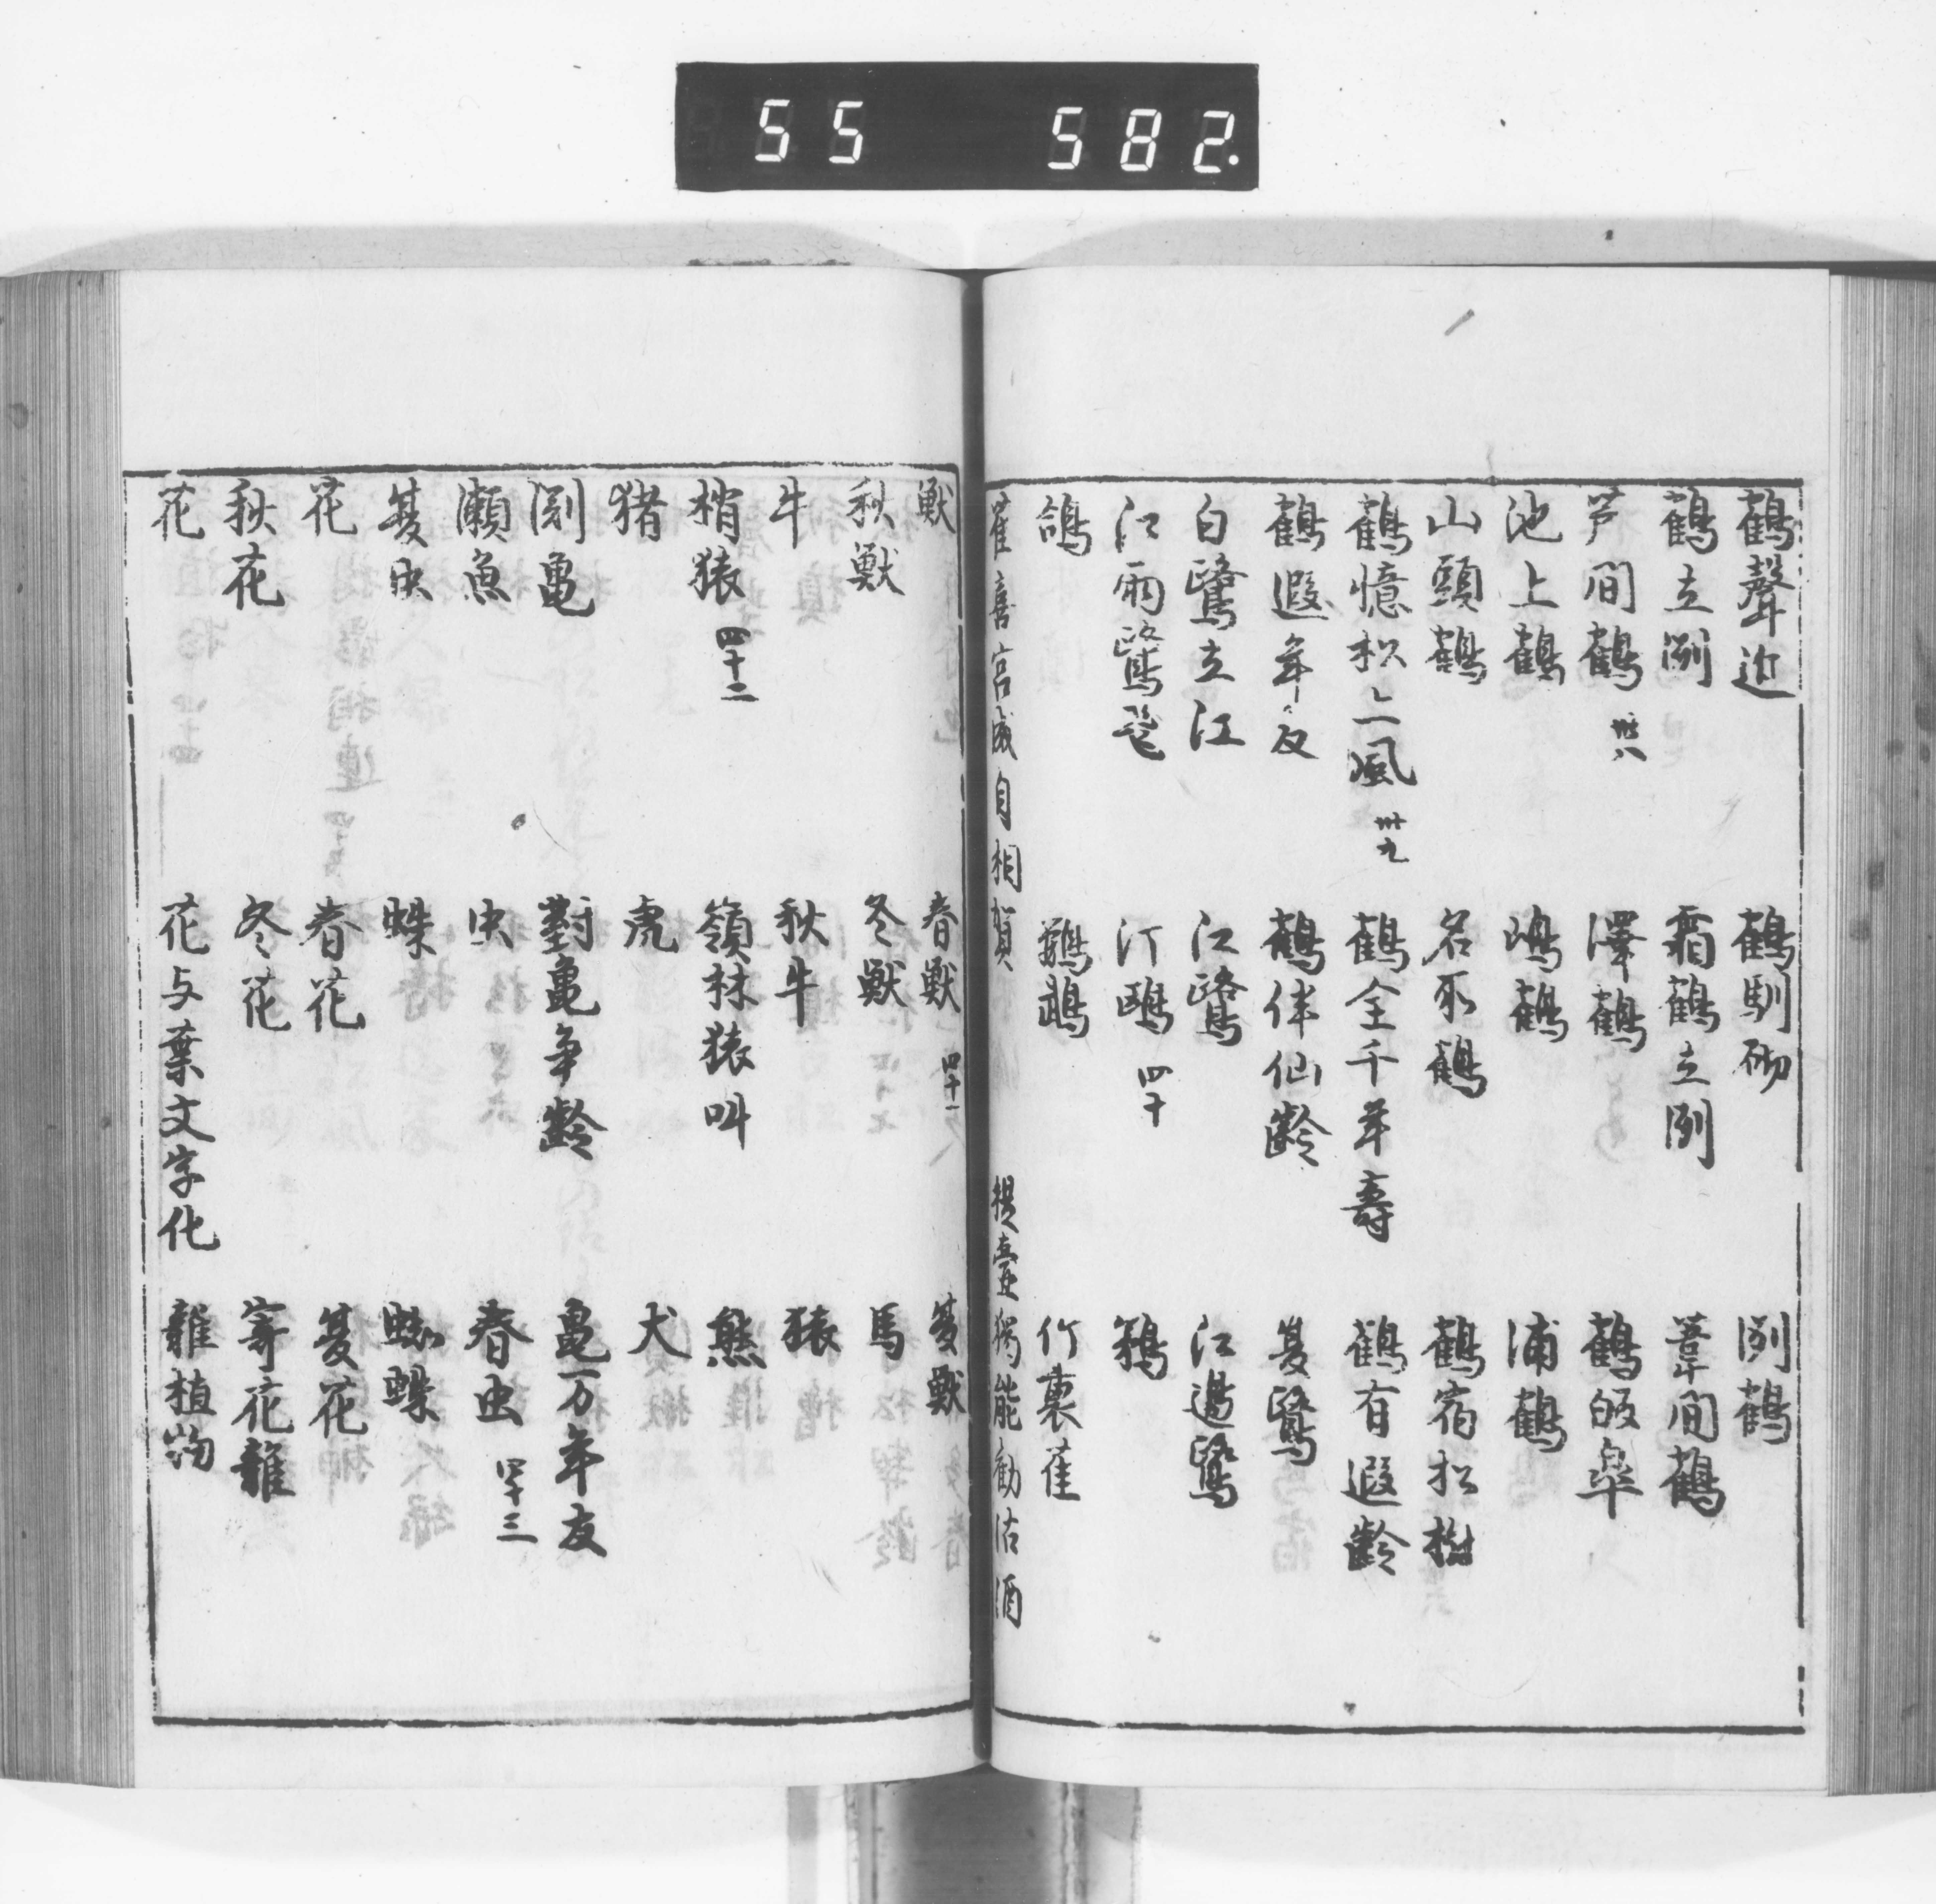 55 582.
鶴聲近 鶴馴砌 澗鶴
鶴立澗 霜鶴立澗 葦間鶴
芦間鶴 卅八 澤鶴 鶴皈皐
池上鶴 嶋鶴 浦鶴
山頭鶴 名所鶴 鶴宿松樹
鶴憶松上風 卅九 鶴全千年壽 鶴有遐齢
鶴遐年友 鶴伴仙齢 夏鷺
白鷺立江 江鷺 江邊鷺
江雨鷺飛 汀鷗 四十 鵶
鴿 鸐鵡 竹裏雀
雀喜宮成自相賀 提壷獨能勧沽酒
獣 春獣 四十一 夏獣
秋獣 冬獣 馬
牛 秋牛 猿
梢猿 四十二 嶺林猿叫 熊
猪 虎 犬
澗亀 對亀争齢 亀万年友
瀬魚 虫 春虫 四十三
夏虫 蝶 蜘蛛
花 春花 夏花
秋花 冬花 寄花雜
花 花与葉文字化 雜植物